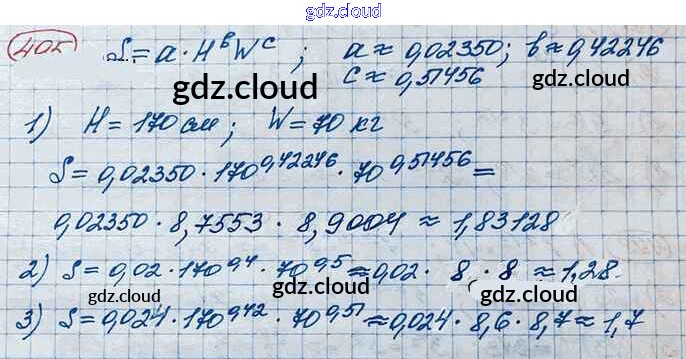 gdz.cloud
gdz.cloud
405 S = a · H^b W^c ; a ≈ 0,02350; b ≈ 0,42246
c ≈ 0,51456
gdz.cloud gdz.cloud
1) H = 170 см ; W = 70 кг
S = 0,02350 · 170^0,42246 · 70^0,51456 =
0,02350 · 8,7553 · 8,9004 ≈ 1,83128
2) S = 0,02 · 170^0,4 · 70^0,5 ≈ 0,02 · 8 · 8 ≈ 1,28.
gdz.cloud gdz.cloud
3) S = 0,024 · 170^0,42 · 70^0,51 ≈ 0,024 · 8,6 · 8,7 ≈ 1,7
gdz.cloud gdz.cloud